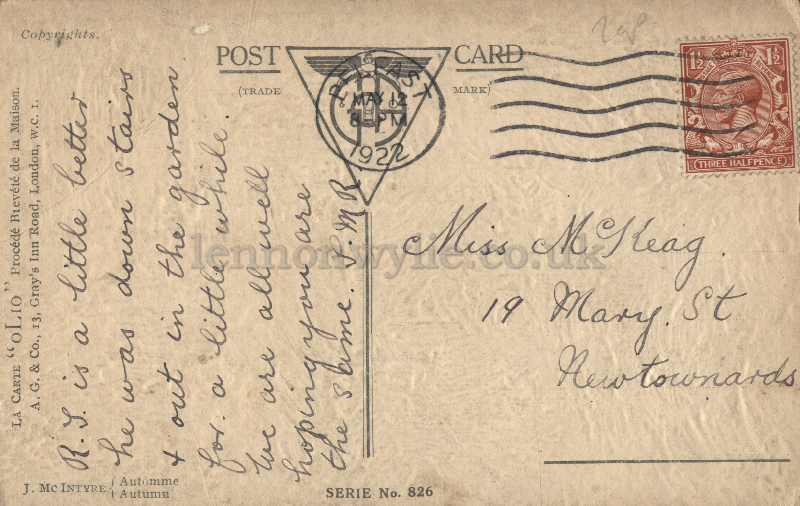 Copyrights.
POST CARD
(TRADE MARK)
BELFAST
MAY 12
8 PM
1922
1½ 1½
THREE HALFPENCE
LA CARTE "OLIO" Procédé Brevété de la Maison.
A. G. & Co., 13, Gray's Inn Road, London, W.C. 1.
R.S. is a little better
he was down stairs
& out in the garden
for a little while.
We are all well
hoping you are
the same. J.M R
Miss McKeag.
19 Mary. St
Newtownards
lennonwylie.co.uk
J. MCINTYRE { Automne
Autumn
SERIE No. 826